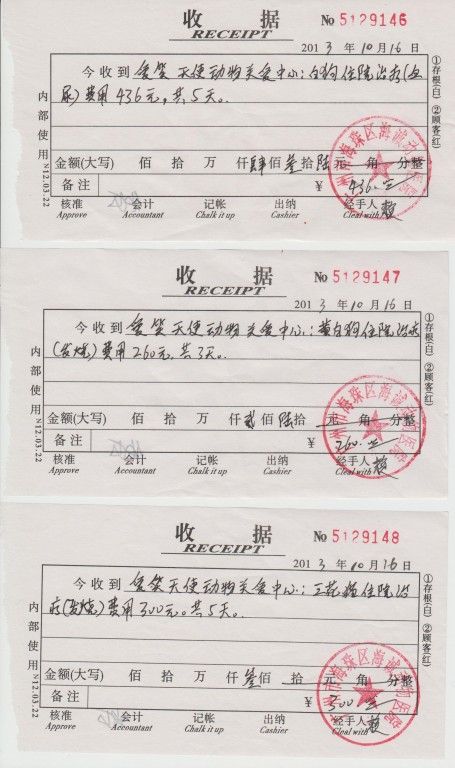 收 据 No 5129146
RECEIPT
2013 年 10 月 16 日
今收到 爱笑天使动物关爱中心: 白狗住院治疗(血
尿)费用436元,共5天。
金额(大写) 佰 拾 万 仟 肆 佰 叁 拾 陆 元 角 分整
备注 ¥ 436.00
核准 会计 记帐 出纳 经手人
Approve Accountant Chalk it up Cashier Cleal with
内部使用 N12.03.22
①存根(白) ②顾客(红)
州市海珠区海诚动物医院
收 据 No 5129147
RECEIPT
2013 年 10 月 16 日
今收到 爱笑天使动物关爱中心: 黄白狗住院治疗
(发烧)费用260元,共3天。
金额(大写) 佰 拾 万 仟 贰 佰 陆 拾 元 角 分整
备注 ¥ 260.00
核准 会计 记帐 出纳 经手人
Approve Accountant Chalk it up Cashier Cleal with
内部使用 N12.03.22
①存根(白) ②顾客(红)
州市海珠区海诚动物医院
收 据 No 5129148
RECEIPT
2013 年 10 月 16 日
今收到 爱笑天使动物关爱中心: 三花猫住院治
疗(发烧)费用300元。共5天。
金额(大写) 佰 拾 万 仟 叁 佰 拾 元 角 分整
备注 ¥ 300.00
核准 会计 记帐 出纳 经手人
Approve Accountant Chalk it up Cashier Cleal with
内部使用 N12.03.22
①存根(白) ②顾客(红)
州市海珠区海诚动物医院